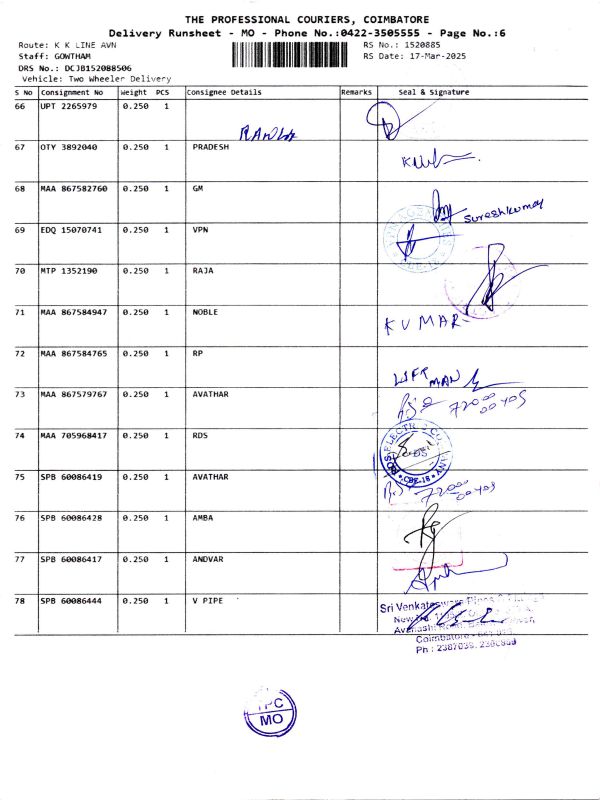 THE PROFESSIONAL COURIERS, COIMBATORE
Delivery Runsheet - MO - Phone No.:0422-3505555 - Page No.:6
Route: K K LINE AVN RS No.: 1520885
Staff: GOWTHAM RS Date: 17-Mar-2025
DRS No.: DCJB152088506
Vehicle: Two Wheeler Delivery
S No Consignment No Weight PCS Consignee Details Remarks Seal & Signature
66 UPT 2265979 0.250 1
67 OTY 3892040 0.250 1 PRADESH
68 MAA 867582760 0.250 1 GM
Sureshkumar
69 EDQ 15070741 0.250 1 VPN
70 MTP 1352190 0.250 1 RAJA
71 MAA 867584947 0.250 1 NOBLE
KUMAR
72 MAA 867584765 0.250 1 RP
MAN
73 MAA 867579767 0.250 1 AVATHAR
74 MAA 705968417 0.250 1 RDS
RDS ELECTR CO ANY
CBE-18
75 SPB 60086419 0.250 1 AVATHAR
76 SPB 60086428 0.250 1 AMBA
77 SPB 60086417 0.250 1 ANDVAR
78 SPB 60086444 0.250 1 V PIPE
Sri Venkateswara Pipes
New No.
Avanashi Road,
Coimbatore
Ph : 2387039,
TPC
MO